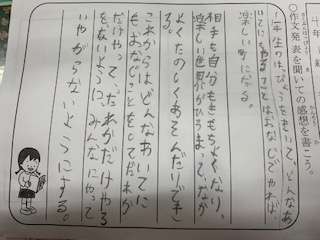 ○作文発表を聞いての感想を書こう。
年生のはっぴょうをきいて、どんなあ
いてにもやることは、おなじでやれば
楽しい町になる。
相手も自分もきもちよくなり、
楽しい世界がひろまって、なか
よくたのしくあそんだりでき
る。
これからは、どんなあいてに
もおなじことをして、だれか
だけやって、だれかだけやる
をないように、みんなにやって
いやがらないようにする。